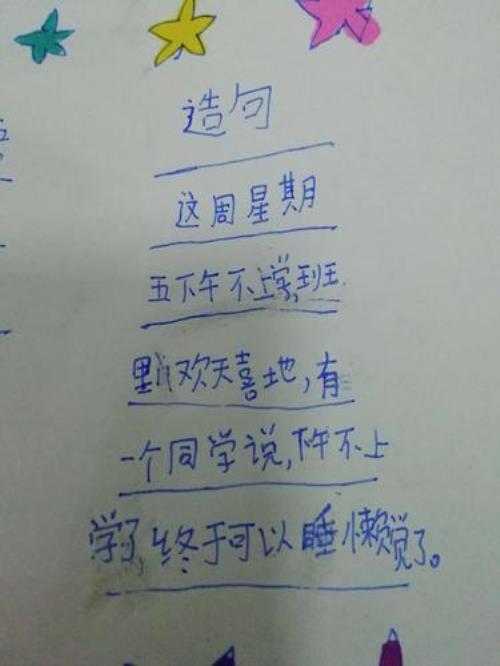 造句
这周星期
五下午不上学,班
里欢天喜地,有
一个同学说,下午不上
学了,终于可以睡懒觉了。